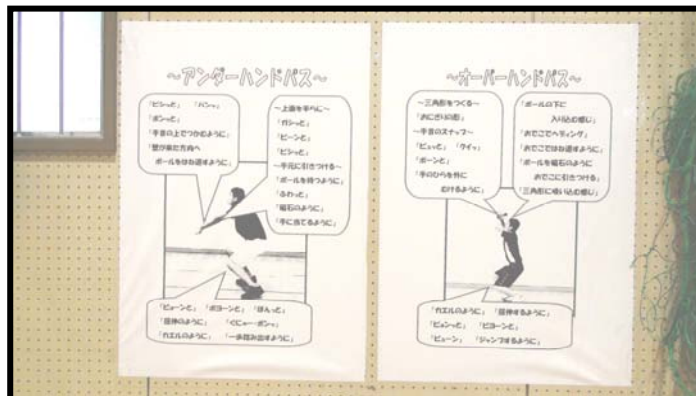 ～アンダーハンドパス～
「ビシっと」　「バシっ」
「ポンっと」
「手首の上でつかむように」
「球が来た方向へ
ボールをはね返すように」
～上面を平らに～
「ガシっと」
「ピーンと」
「ビシっと」
～手元に引きつける～
「ボールを待つように」
「ふわっと」
「磁石のように」
「手に当てるように」
「ビューンと」　「ボヨーンと」　「ぽんっと」
「屈伸のように」　「ぐにゃーポンっ」
「カエルのように」　「一歩踏み出すように」
～オーバーハンドパス～
～三角形をつくる～
「おにぎりの形」
～手首のスナップ～
「ビュっと」　「クイっ」
「ポーンと」
「手のひらを外に
むけるように」
「ボールの下に
入り込む感じ」
「おでこでヘディング」
「おでこではね返すように」
「ボールを磁石のように
おでこに引きつける」
「三角形に吸い込む感じ」
「カエルのように」　「屈伸するように」
「ピョンっと」　「ビヨーンと」
「ビューン」　「ジャンプするように」